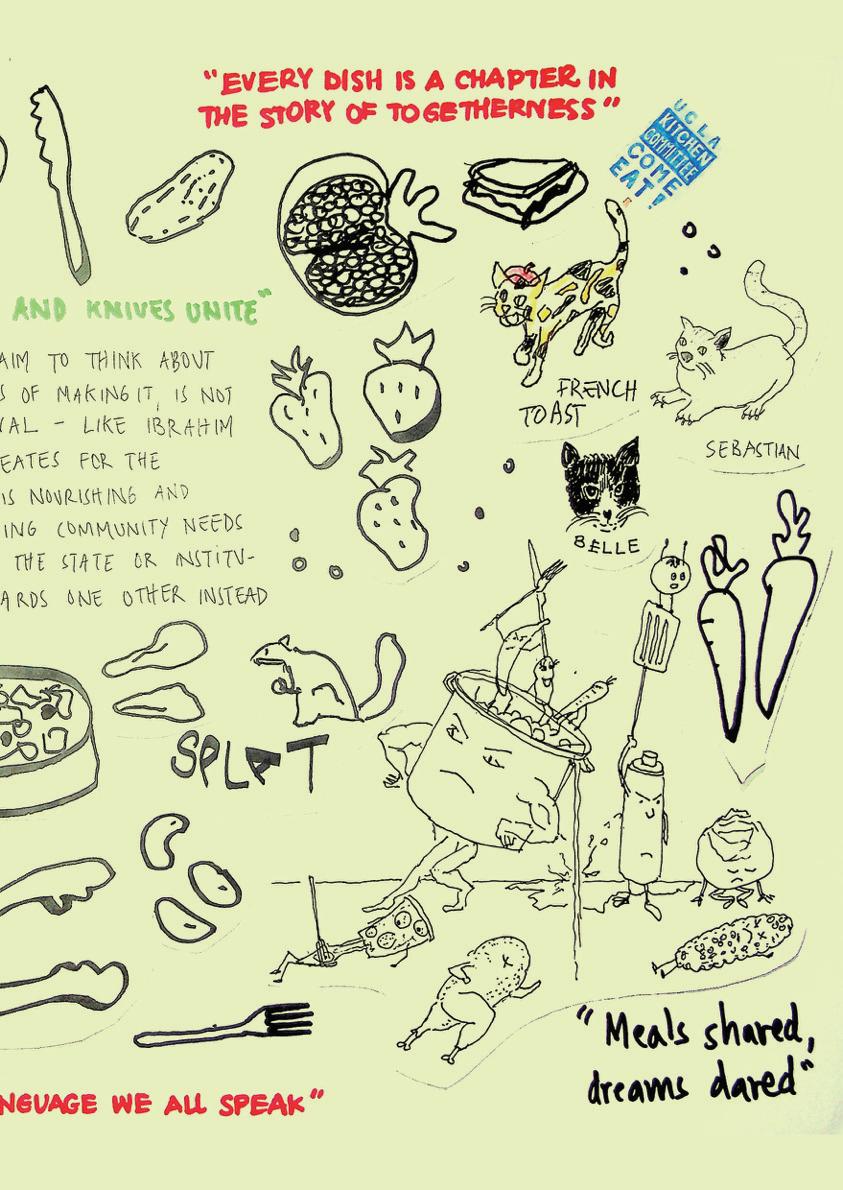 "EVERY DISH IS A CHAPTER IN
THE STORY OF TOGETHERNESS"
UCLA
KITCHEN
COMMITTEE
COME
EAT!
AND KNIVES UNITE"
AIM TO THINK ABOUT
S OF MAKING IT, IS NOT
VAL - LIKE IBRAHIM
EATES FOR THE
IS NOURISHING AND
ING COMMUNITY NEEDS
THE STATE OR INSTITU-
ARDS ONE OTHER INSTEAD
FRENCH
TOAST
SEBASTIAN
BELLE
SPLAT
"Meals shared,
dreams dared"
NGUAGE WE ALL SPEAK"